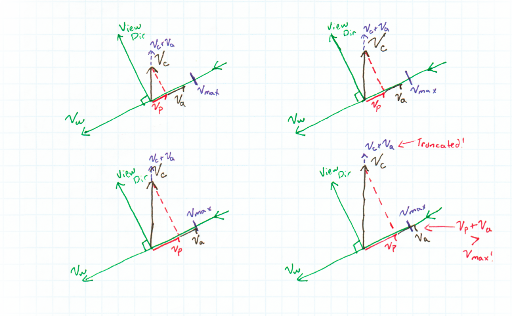 View
Dir
Vc+Va
Vc
Vmax
Va
Vp
Vw
View
Dir
Vc+Va
Vc
Vmax
Va
Vp
Vw
View
Dir
Vc+Va
Vc
Vmax
Va
Vp
Vw
Vc+Va
Truncated!
Vc
View
Dir
Vmax
Va
Vp
Vw
Vp+Va
>
Vmax!